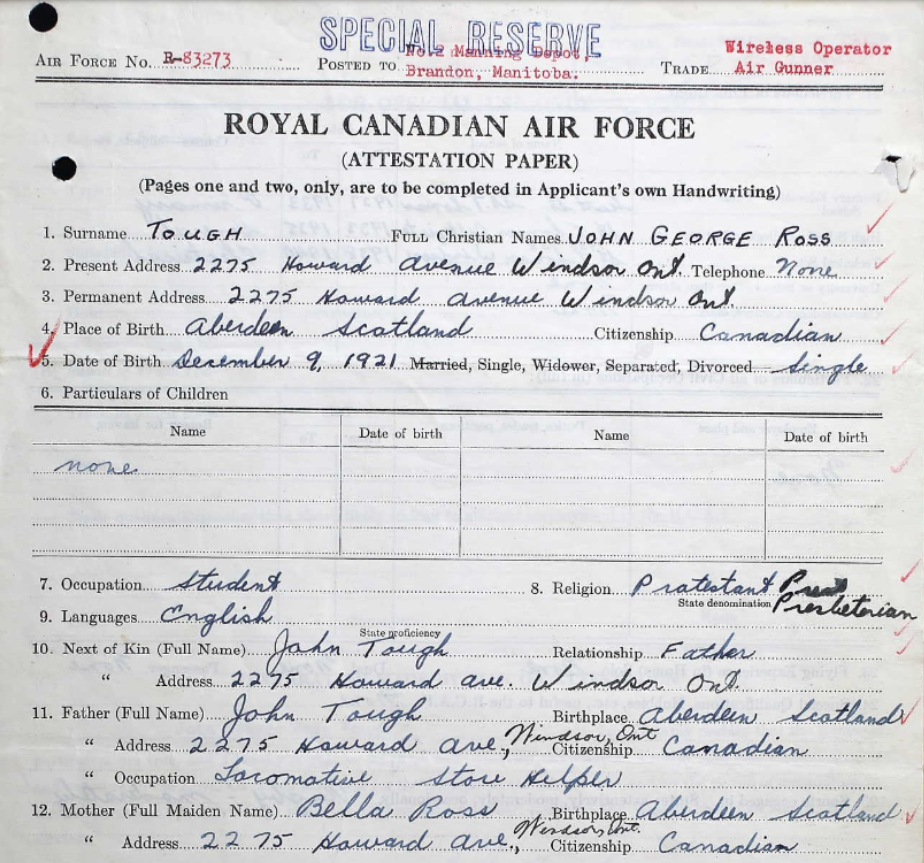 SPECIAL RESERVE
AIR FORCE NO. R-83273 POSTED TO No.2 Manning Depot, Brandon, Manitoba. TRADE Wireless Operator Air Gunner
ROYAL CANADIAN AIR FORCE
(ATTESTATION PAPER)
(Pages one and two, only, are to be completed in Applicant's own Handwriting)
1. Surname TOUGH FULL Christian Names JOHN GEORGE ROSS
2. Present Address 2275 Howard Avenue Windsor Ont. Telephone None
3. Permanent Address 2275 Howard Avenue Windsor Ont.
4. Place of Birth Aberdeen Scotland Citizenship Canadian
5. Date of Birth December 9, 1921 Married, Single, Widower, Separated, Divorced Single
6. Particulars of Children
Name Date of birth Name Date of birth
none
7. Occupation Student 8. Religion Protestant Presbeterian
State denomination
9. Languages English
State proficiency
10. Next of Kin (Full Name) John Tough Relationship Father
" Address 2275 Howard ave. Windsor Ont.
11. Father (Full Name) John Tough Birthplace Aberdeen Scotland
" Address 2275 Howard ave., Windsor, Ont Citizenship Canadian
" Occupation Locomative Store Helper
12. Mother (Full Maiden Name) Bella Ross Birthplace Aberdeen Scotland
" Address 2275 Howard ave., Windsor, Ont. Citizenship Canadian